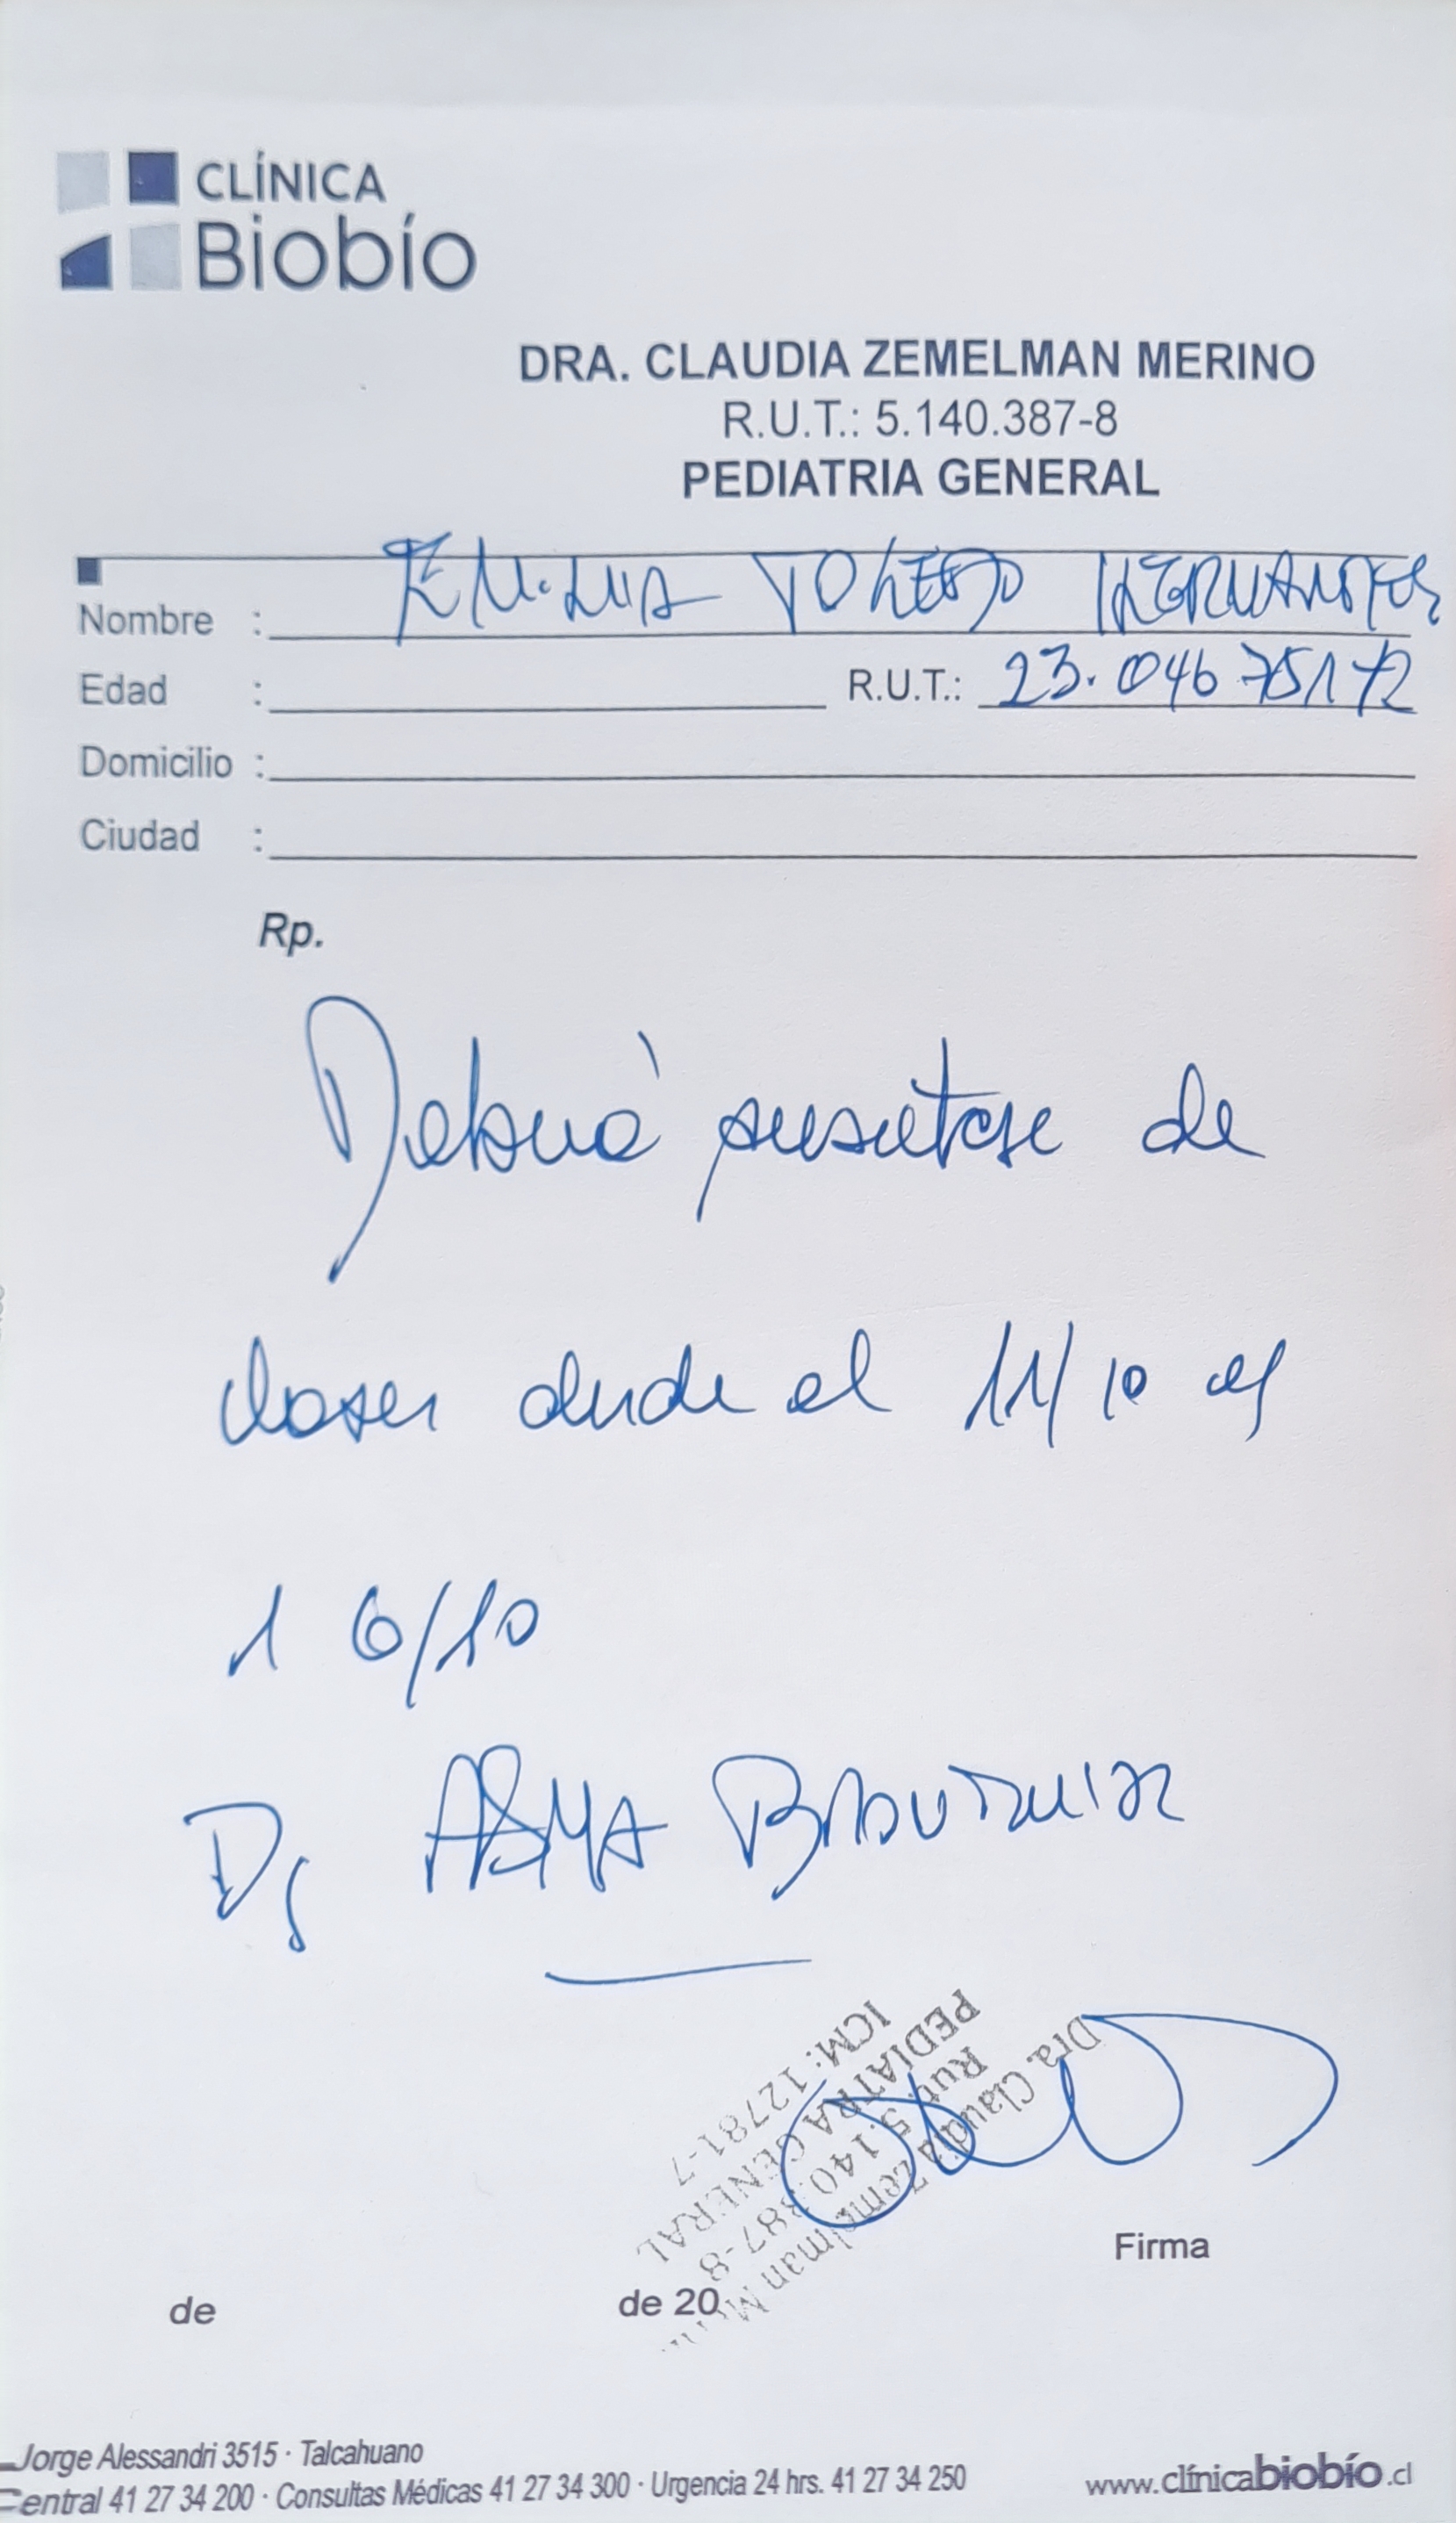 CLÍNICA
Biobío
DRA. CLAUDIA ZEMELMAN MERINO
R.U.T.: 5.140.387-8
PEDIATRIA GENERAL
Nombre : EMILIA TOLEDO HERNANDEZ
Edad : R.U.T.: 23.046
Domicilio :
Ciudad :
Rp.
Deberá ausentarse de
clases desde el 11/10 al
16/10
Dg ASMA
Dra. Claudia Zemelman
Rut 5.140.387-8
PEDIATRA GENERAL
ICM: 12781-7
Firma
de de 20
Jorge Alessandri 3515 · Talcahuano
Central 41 27 34 200 · Consultas Médicas 41 27 34 300 · Urgencia 24 hrs. 41 27 34 250
www.clínicabiobío.cl